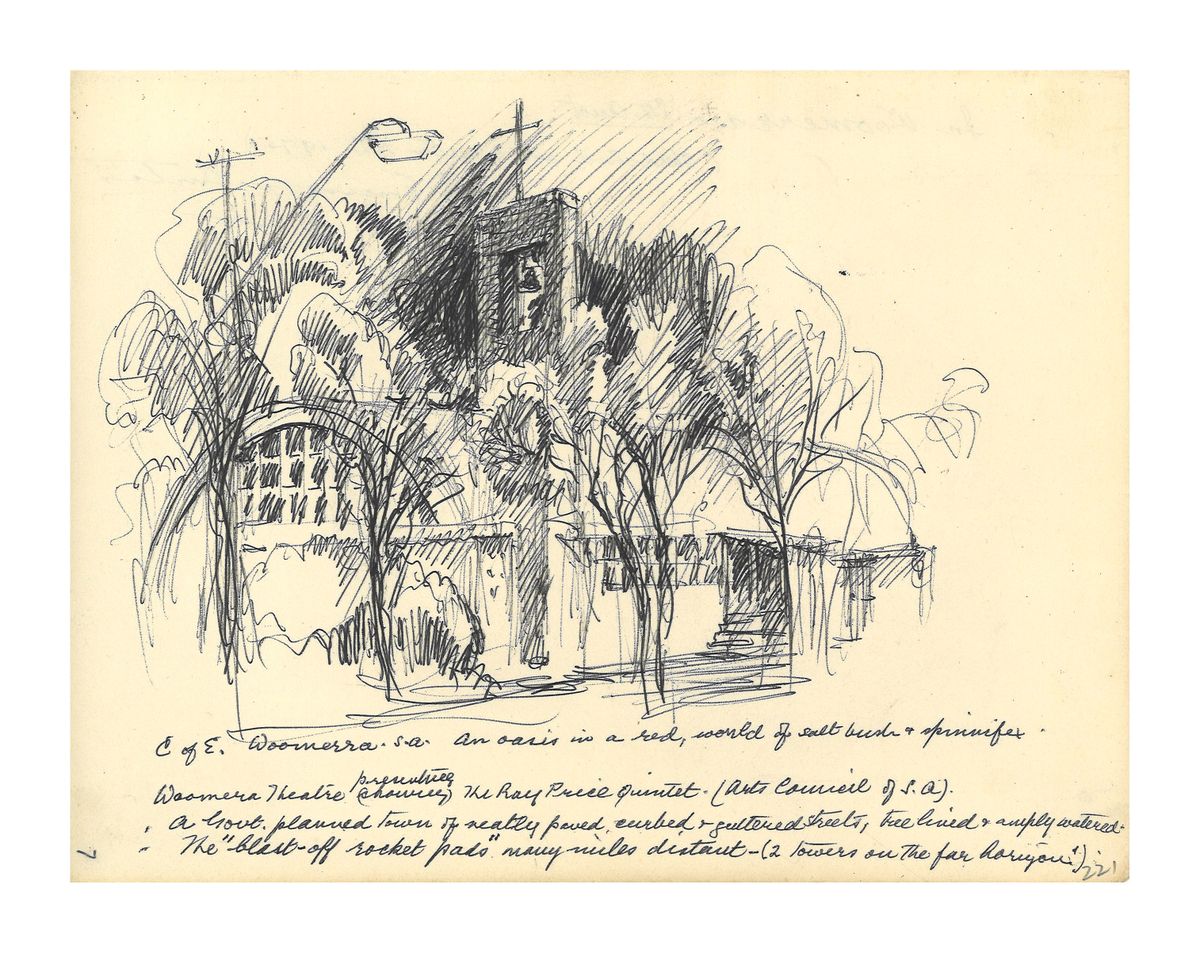 C of E. Woomerra. S.A. An oasis in a red, world of salt bush & spinnifex.
presenting
Woomera Theatre (showing) The Ray Price Quintet - (Arts Council of S.A).
" A Govt. planned town of neatly paved, curbed & guttered streets, tree lined & amply watered.
" The "blast-off rocket pads" many miles distant - (2 towers on the far horizon!)
22